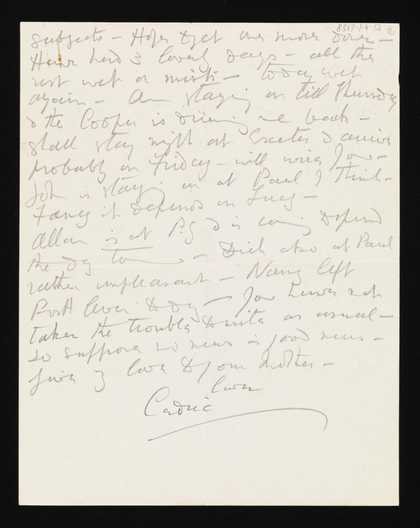 subjects – Hope to get one more done –
Have had 3 lovely days – all the
rest wet or misty – today wet
again – Am staying on till Thursday
& the Cooper is driving me back –
shall stay night at Exeter & arrive
probably on Friday – will wire you –
John is staying on at Paul I think –
Fancy it depends on Lucy –
Allan is at P.G. & is coming
the day – Dick also at Paul
rather unpleasant – Nancy left
Port – You have not
taken the trouble to write as usual –
so suppose no news is good news –
Give my love to your mother –
love
Cedric